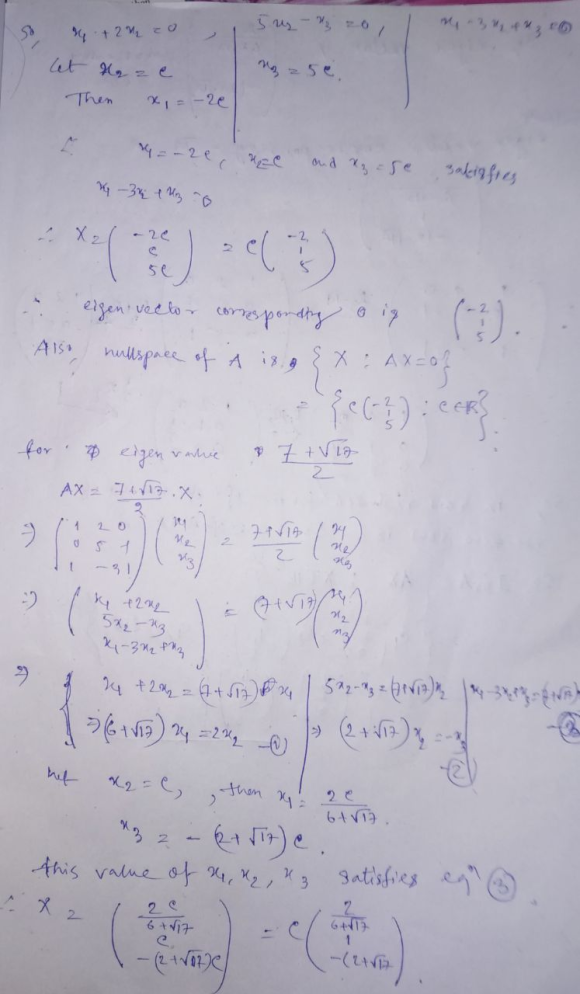 So, x₁ + 2x₂ = 0, | 5x₂ - x₃ = 0, | x₁ - 3x₂ + x₃ = 0
Let x₂ = c | x₃ = 5c.
Then x₁ = -2c
x₁ = -2c, x₂ = c and x₃ = 5c satisfies
x₁ - 3x₂ + x₃ = 0
∴ X = (-2c; c; 5c) = c(-2; 1; 5)
∴ eigen vector corresponding 0 is (-2; 1; 5).
Also, nullspace of A is, { X : AX = 0}
= { c(-2; 1; 5) : c ∈ R}.
for eigen value (7 + √17)/2
AX = (7+√17)/2 . X
⇒ (1 2 0; 0 5 -1; 1 -3 1) (x₁; x₂; x₃) = (7+√17)/2 (x₁; x₂; x₃)
⇒ (x₁ + 2x₂; 5x₂ - x₃; x₁ - 3x₂ + x₃) = (7+√17) (x₁; x₂; x₃)
⇒ { x₁ + 2x₂ = (7+√17) x₁ | 5x₂ - x₃ = (7+√17) x₂ | x₁ - 3x₂ + x₃ = (7+√17)x
⇒ (6+√17) x₁ = 2x₂ - ① | ⇒ (2+√17) x₂ = -x₃ - ② | - ③
let x₂ = c, , then x₁ = 2c/(6+√17).
x₃ = - (2+√17) c.
this value of x₁, x₂, x₃ satisfies eqⁿ ③.
∴ X = (2c/(6+√17); c; -(2+√17)c) = c(2/(6+√17); 1; -(2+√17).